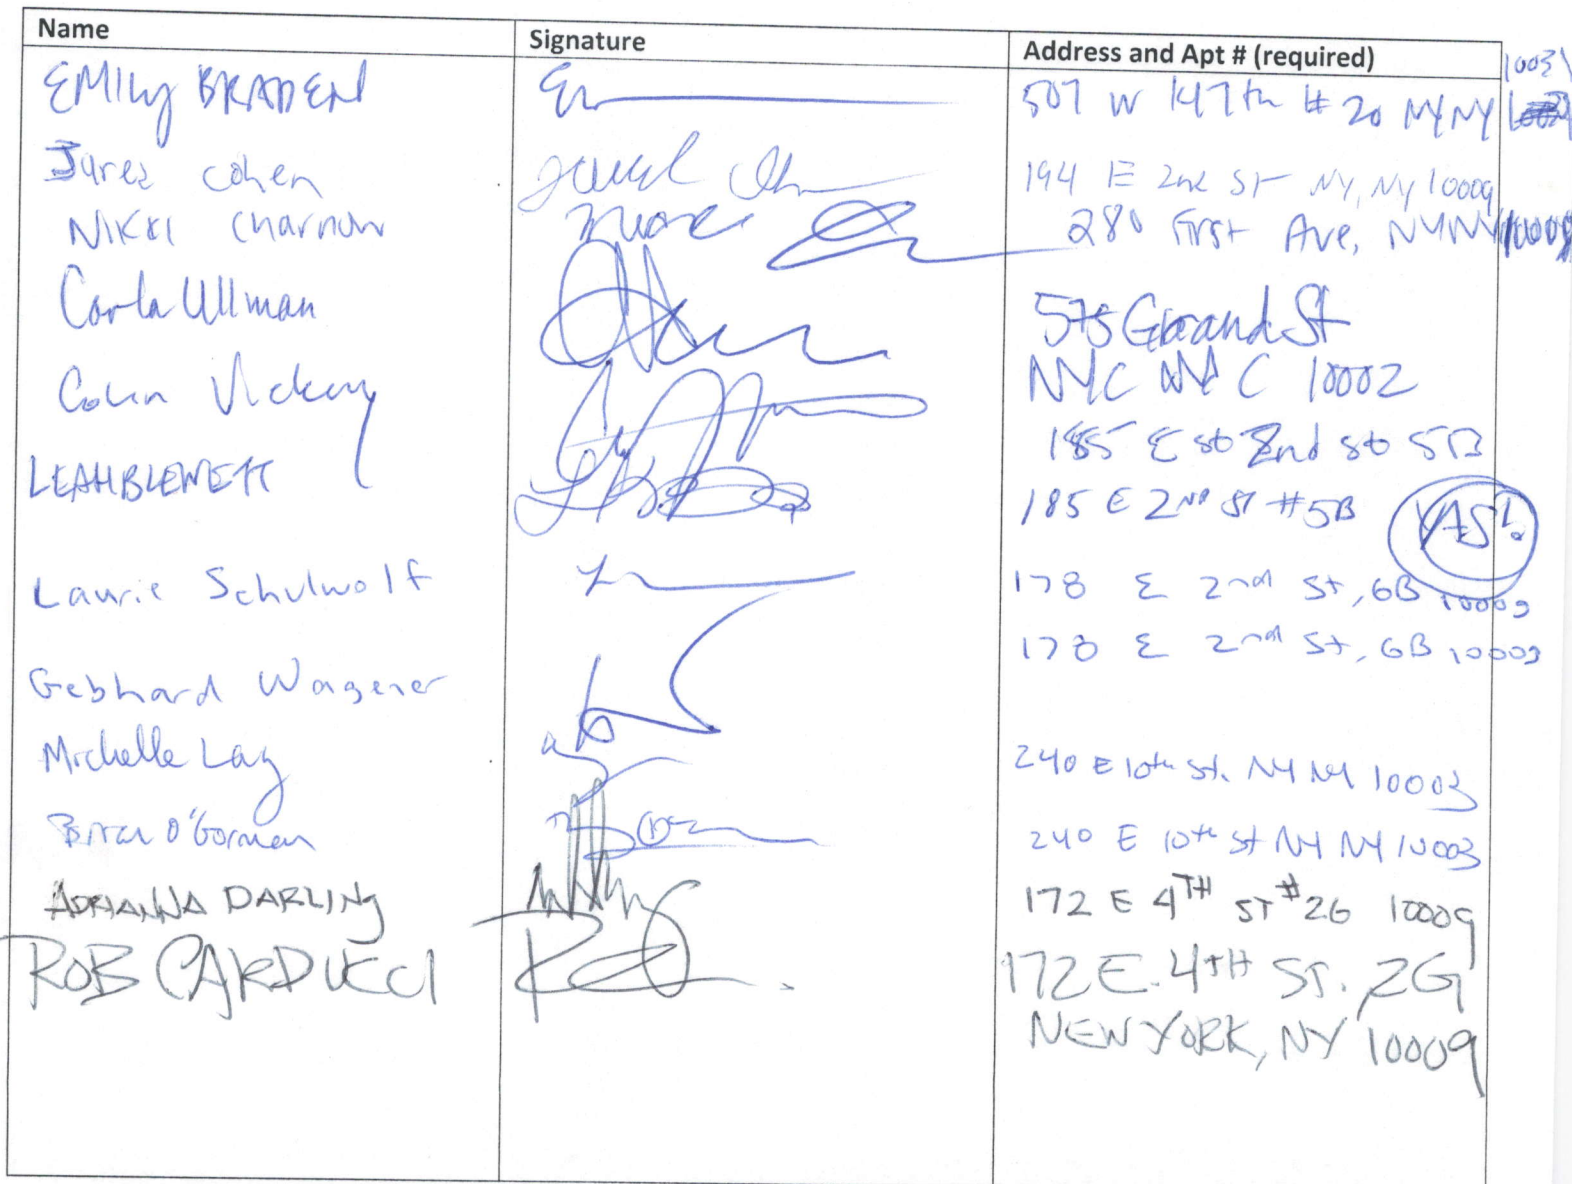 Name Signature Address and Apt # (required)
EMILY BRADEN 507 W 147th # 20 NY NY 10031
Jared Cohen 194 E 2nd St NY, NY 10009
Nikki Charnow 280 First Ave, NY NY 10009
Carla Ullman 575 Grand St
NYC 10002
Colin Vickery 185 E 2nd St 5B
LEAH BLEWETT 185 E 2ND ST #5B YAS!
Laurie Schulwolf 178 E 2nd St, 6B 10009
Gebhard Wagener 178 E 2nd St, 6B 10009
Michelle Lay 240 E 10th St. NY NY 10003
Brian O'Gorman 240 E 10th St NY NY 10003
ADRIANNA DARLING 172 E 4TH ST #2G 10009
ROB CARDUCCI 172 E. 4TH ST. 2G
NEW YORK, NY 10009